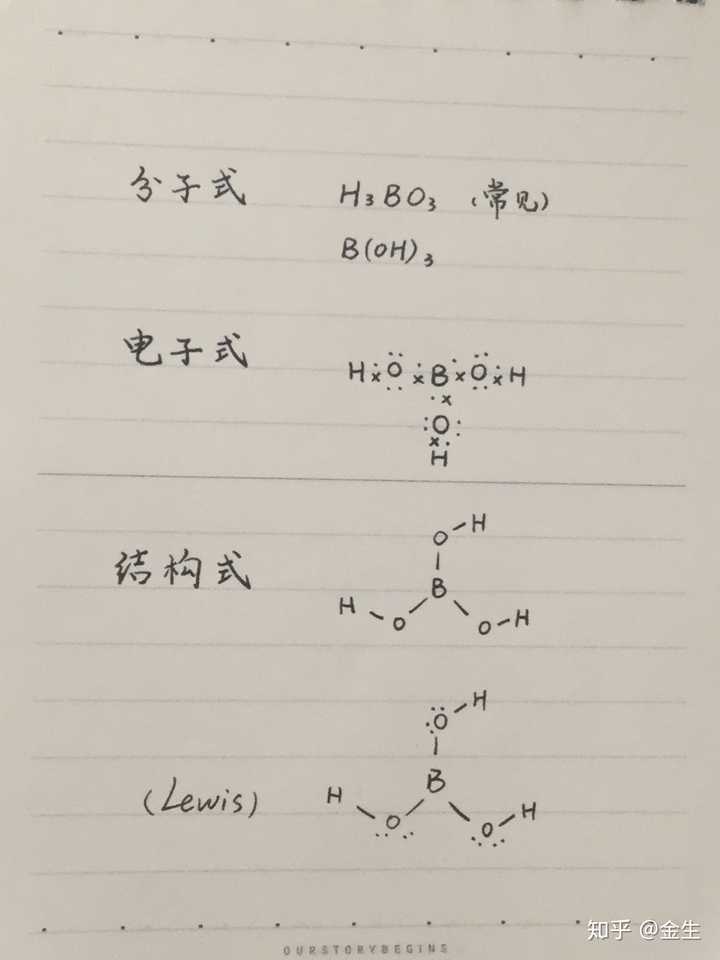 分子式 H₃BO₃ (常见)
B(OH)₃
电子式 H O B O H
O
H
结构式
O H
B
H O O H
(Lewis)
O H
B
H O O H
OURSTORYBEGINS
知乎 @金生